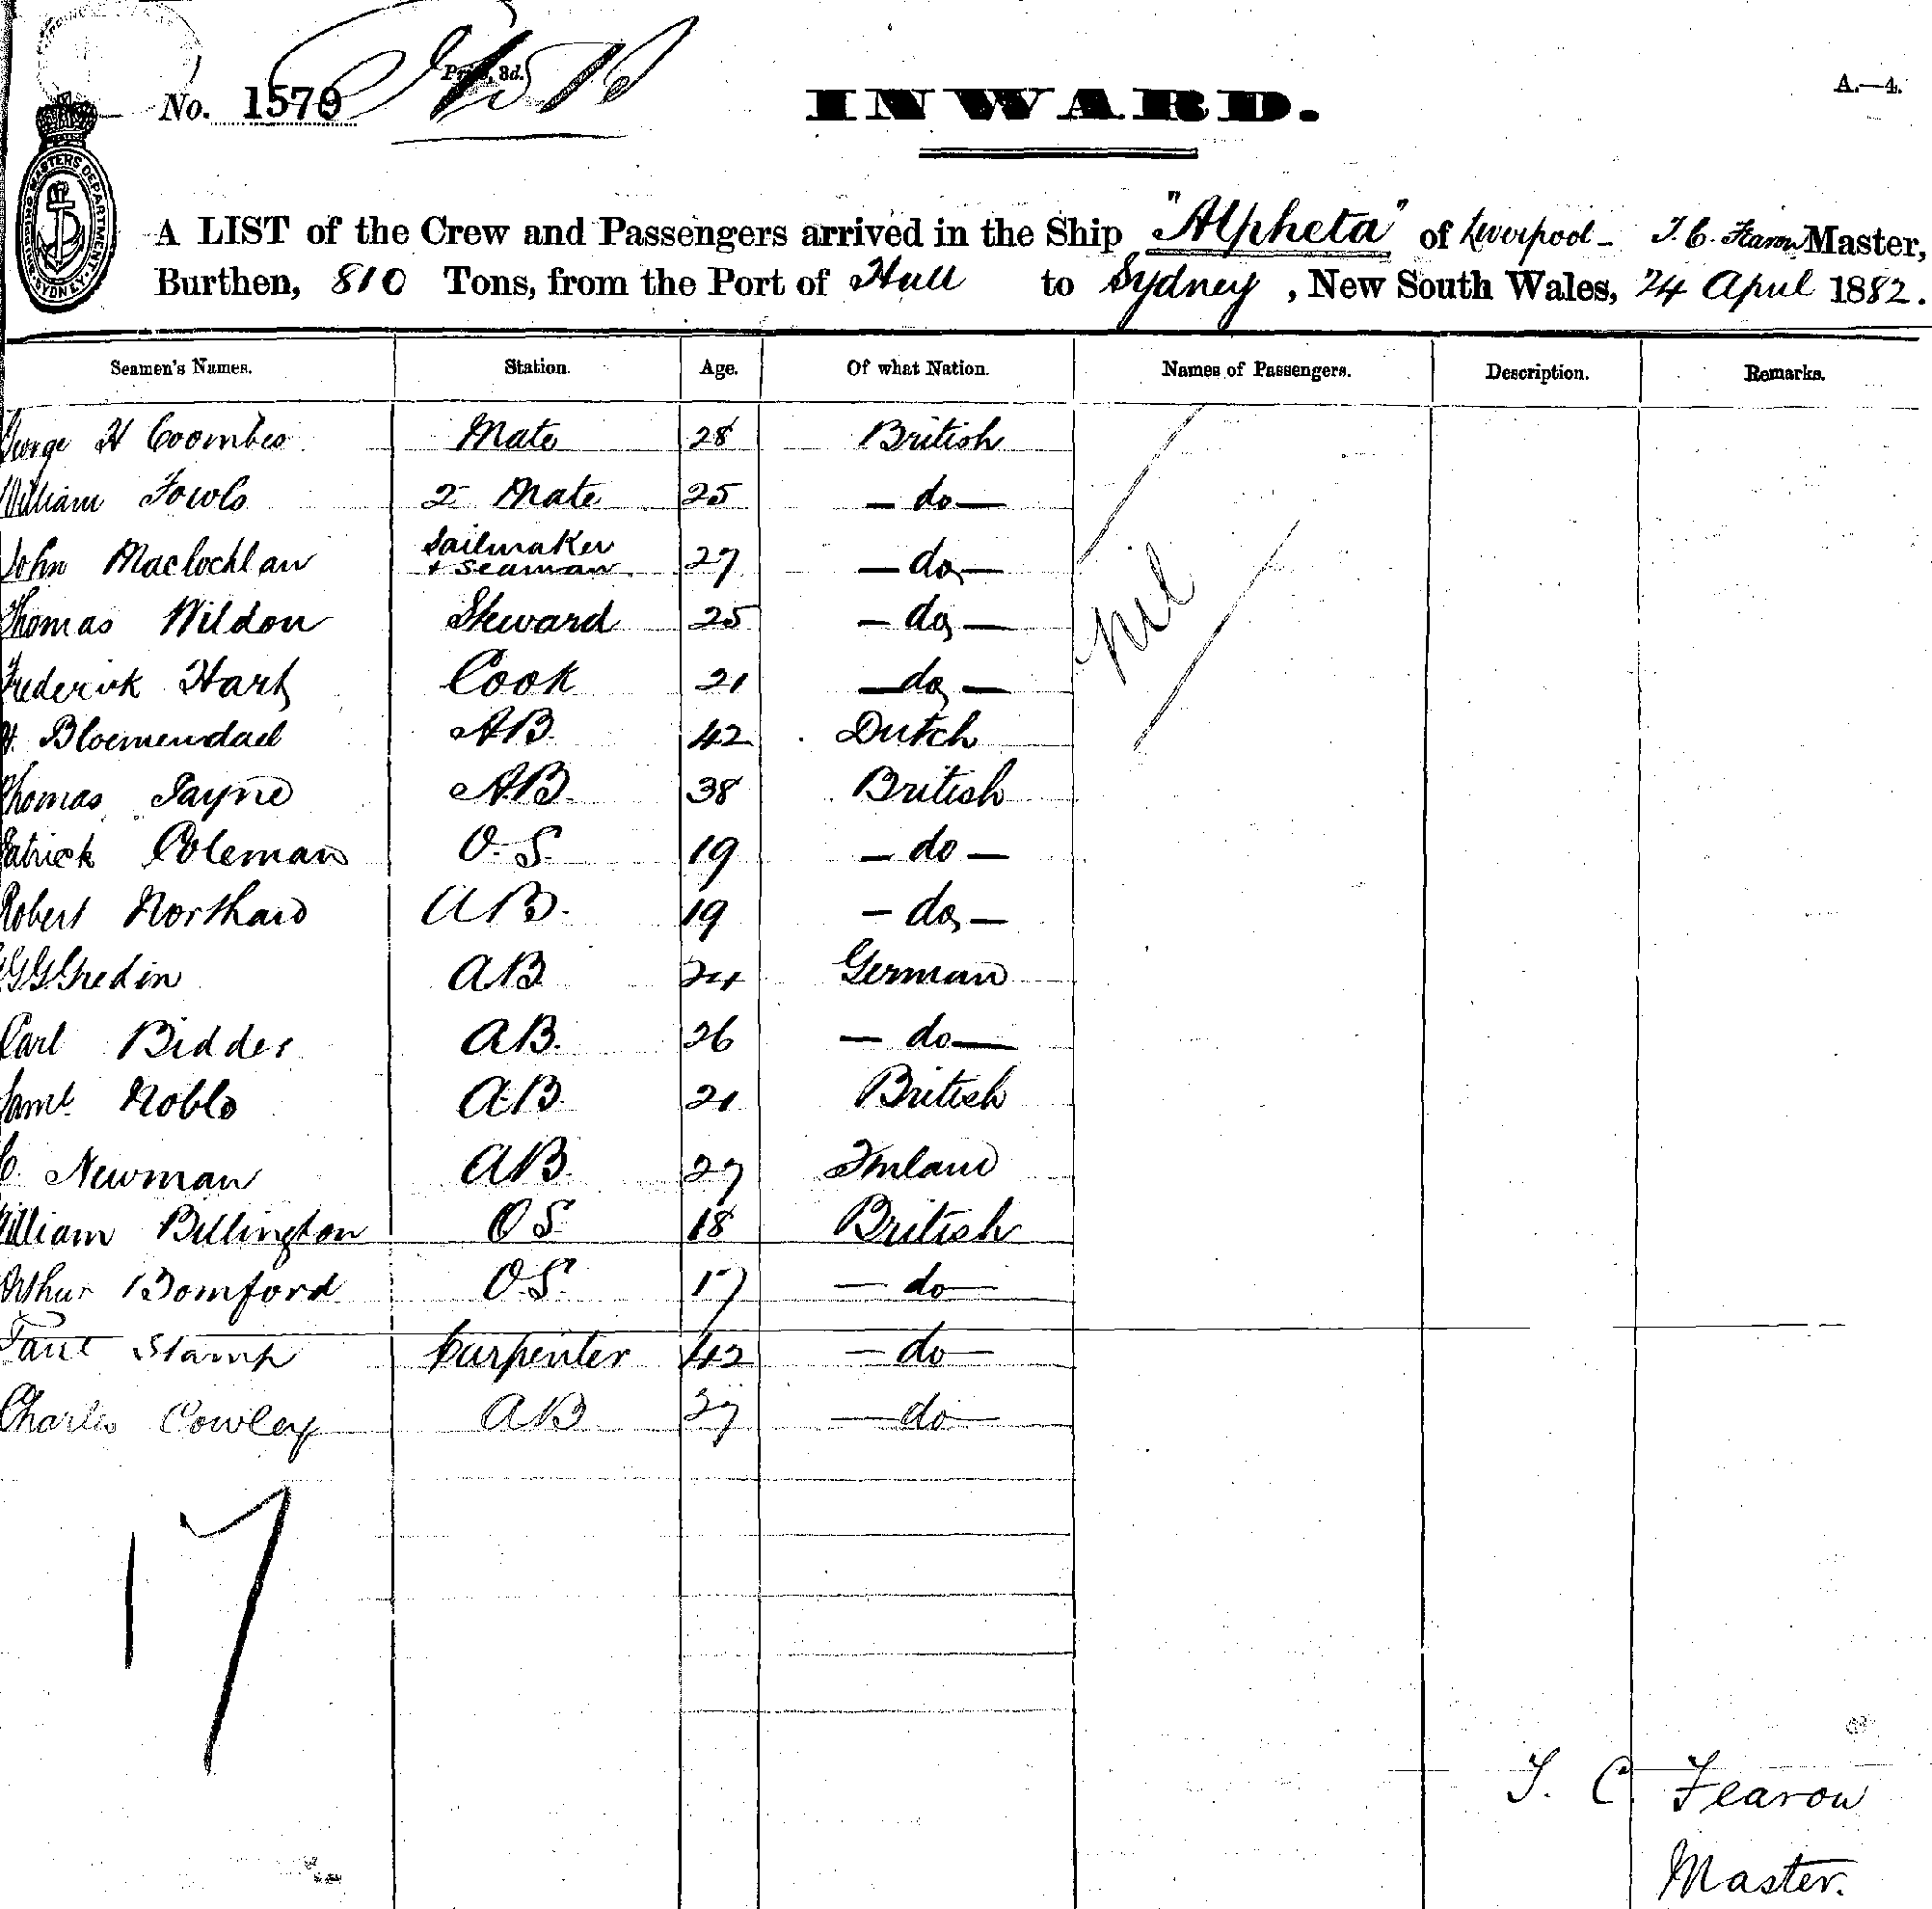 No. 1579 Price, 3d.
INWARD.
A.—4.
SHIPPING MASTERS DEPARTMENT · SYDNEY ·
A LIST of the Crew and Passengers arrived in the Ship "Alpheta" of Liverpool - T. C. Fearon Master,
Burthen, 810 Tons, from the Port of Hull to Sydney, New South Wales, 24 April 1882.
Seamen's Names. Station. Age. Of what Nation. Names of Passengers. Description. Remarks.
George H Coombes Mate 28 British
William Fowls 2 Mate 25 — do —
John Maclochlan Sailmaker + Seaman 27 — do —
Thomas Wildon Steward 25 — do —
nil
Frederick Hart Cook 21 — do —
H. Bloemendaal AB 42 Dutch
Thomas Jayne AB. 38 British
Patrick Coleman O.S. 19 — do —
Robert Northard AB. 19 — do —
AB 24 German
Carl Bidder AB. 26 — do —
Saml Noble AB 21 British
C. Newman AB. 27 Finland
William Billington OS 18 British
Arthur Bomford O.S. 17 — do —
Stamp Carpenter 42 — do —
Charles Cowley AB 37 — do —
17
T. C. Fearon
Master.